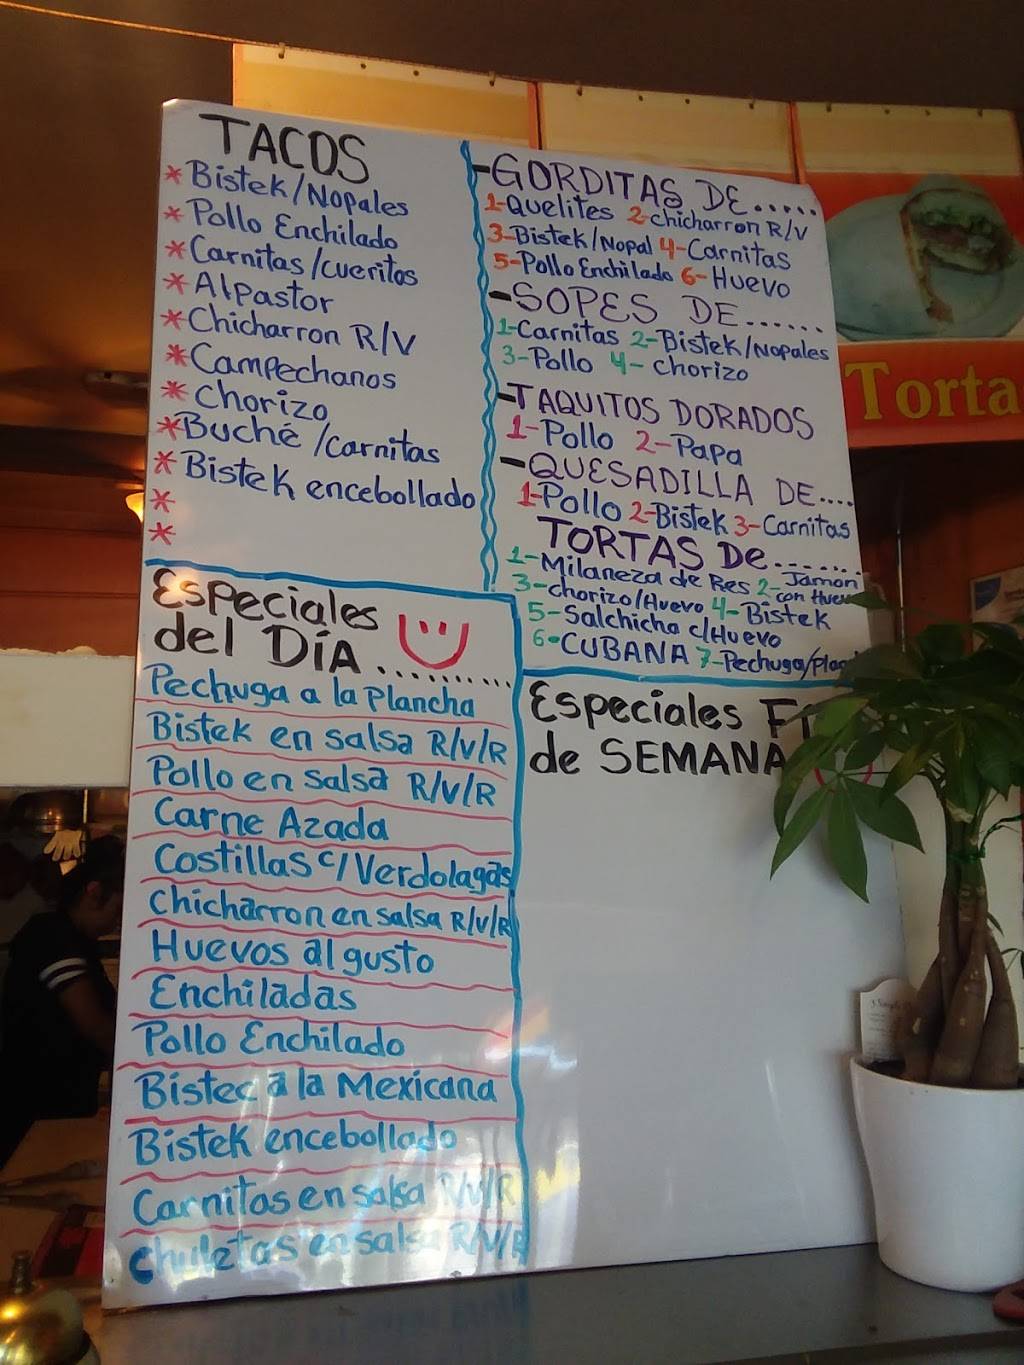 TACOS
*Bistek/Nopales
*Pollo Enchilado
*Carnitas/cueritos
*Alpastor
*Chicharron R/V
*Campechanos
*Chorizo
*Buché/Carnitas
*Bistek encebollado
*
*
-GORDITAS DE.....
1-Quelites 2-chicharron R/V
3-Bistek/Nopal 4-Carnitas
5-Pollo Enchilado 6-Huevo
-SOPES DE......
1-Carnitas 2-Bistek/Nopales
3-Pollo 4-chorizo
-TAQUITOS DORADOS
1-Pollo 2-Papa
-QUESADILLA DE....
1-Pollo 2-Bistek 3-Carnitas
TORTAS De.......
1-Milaneza de Res 2-Jamon con Huevo
3-chorizo/Huevo 4-Bistek
5-Salchicha c/Huevo
6-CUBANA 7-Pechuga/
Especiales
del Día..........
Pechuga a la Plancha
Bistek en salsa R/V/R
Pollo en salsa R/V/R
Carne Azada
Costillas c/Verdolagas
Chicharron en salsa R/V/R
Huevos al gusto
Enchiladas
Pollo Enchilado
Bistec a la Mexicana
Bistek encebollado
Carnitas en salsa R/V/R
chuletas en salsa R/V/R
Especiales
de SEMANA
Torta